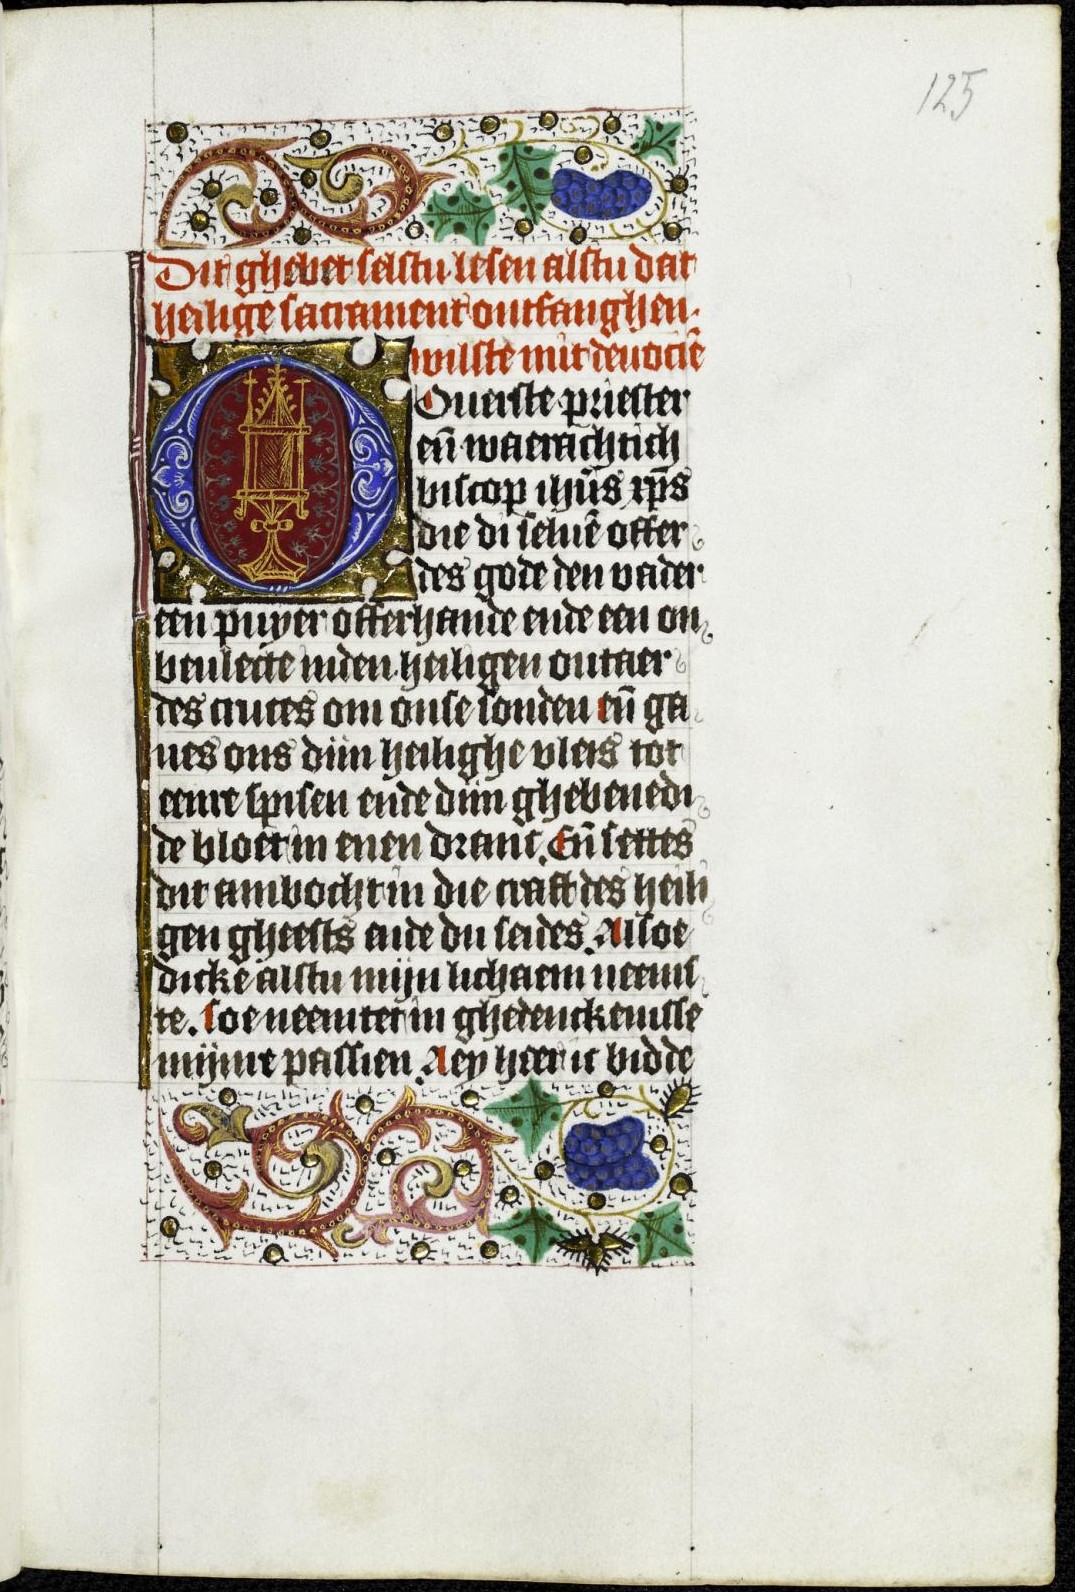 125
Dit ghebet selstu lesen alstu dat
heilige sacrament ontfanghen
wilste mit deuocië
O Ouerste priester
eñ waerachtich
biscop ihũs xp̃s
die di seluē offer
des gode den vader
een puyer offerhande ende een on
beulecte inden heiligen outaer
des cruces om onse sonden eñ ga
ues ons dijn heilighe vleis tot
eenre spisen ende dijn ghebenedi
de bloet in enen dranc. Eñ settes
dit ambocht in die craft des heili
gen gheests ende du seides. Alsoe
dicke alstu mijn lichaem neemt
te. soe neemtet in ghedenckenisse
mijnre passien. Aey heer ic bidde